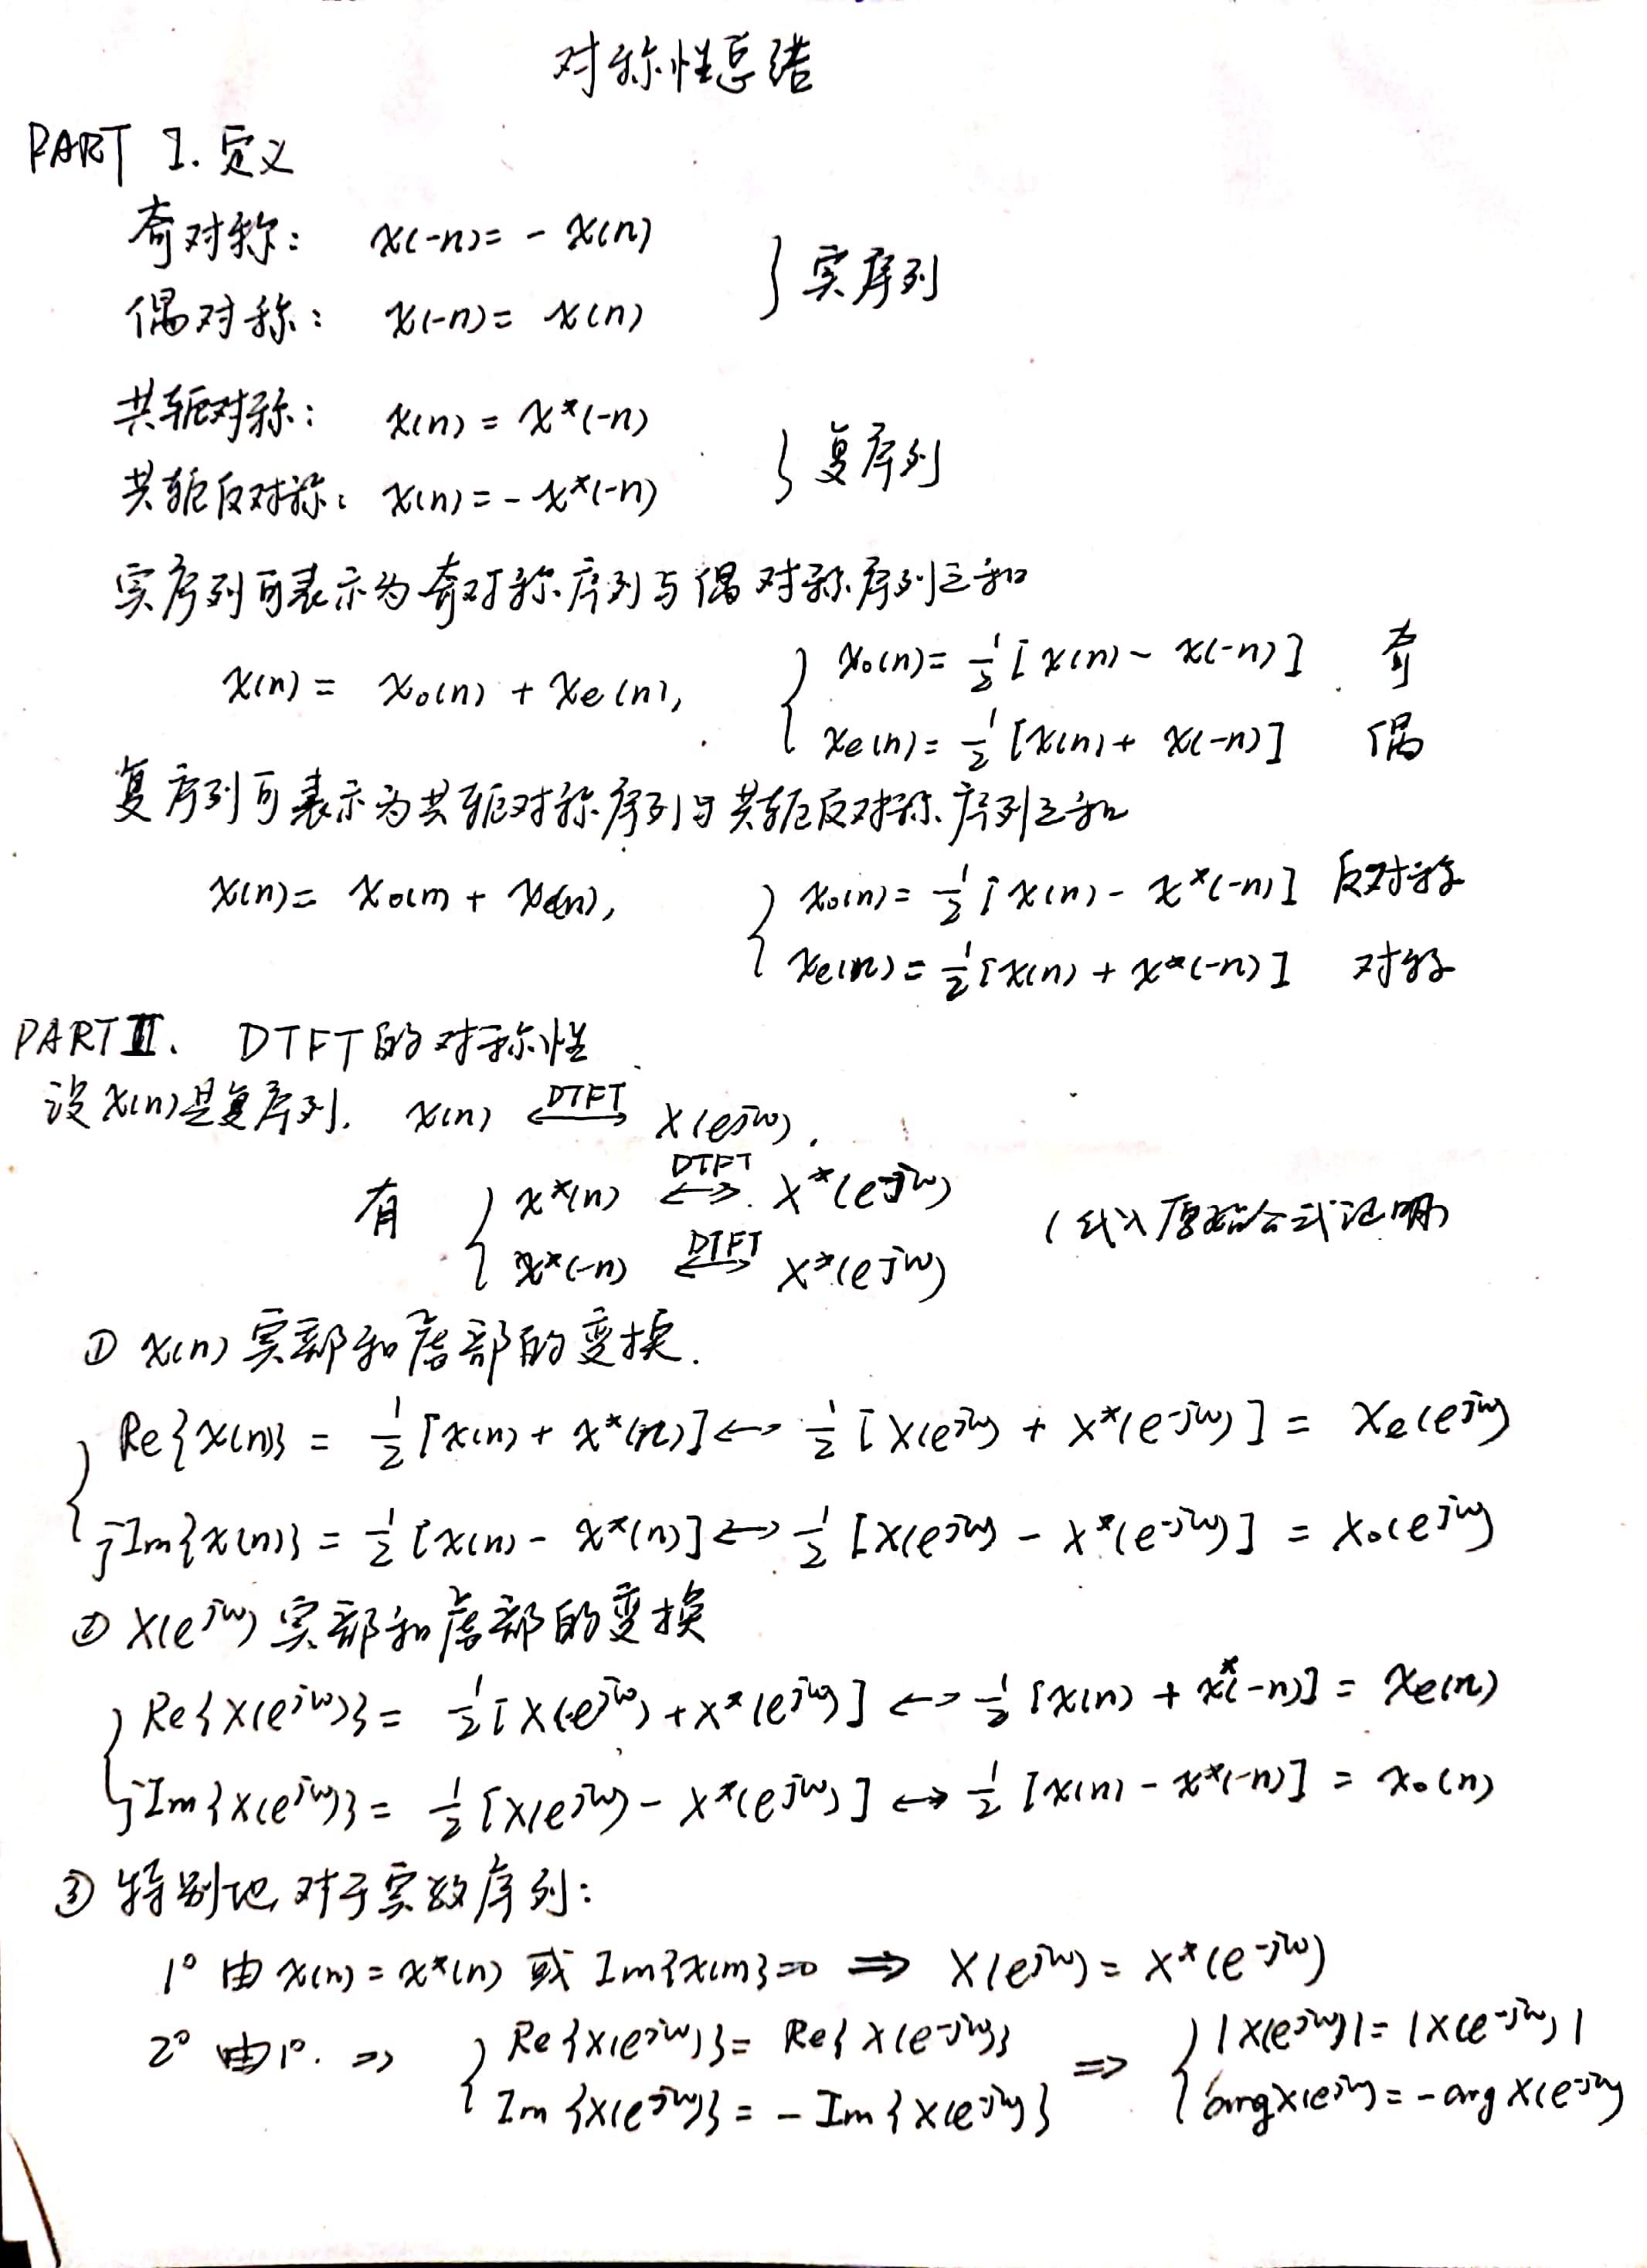 对称性总结
PART I. 定义
奇对称： x(-n) = - x(n)
} 实序列
偶对称： x(-n) = x(n)
共轭对称： x(n) = x*(-n)
} 复序列
共轭反对称： x(n) = - x*(-n)
实序列可表示为奇对称序列与偶对称序列之和
x(n) = x₀(n) + xe(n), { x₀(n) = ½ [ x(n) - x(-n) ] 奇
xe(n) = ½ [ x(n) + x(-n) ] 偶
复序列可表示为共轭对称序列与共轭反对称序列之和
x(n) = x₀(n) + xe(n), { x₀(n) = ½ [ x(n) - x*(-n) ] 反对称
xe(n) = ½ [ x(n) + x*(-n) ] 对称
PART II. DTFT的对称性
设x(n)是复序列. x(n) ⟷(DTFT) X(e^{jω}).
有 { x*(n) ⟷(DTFT) X*(e^{-jω})
(代入原始公式证明)
x*(-n) ⟷(DTFT) X*(e^{jω})
① x(n) 实部和虚部的变换.
{ Re{x(n)} = ½ [x(n) + x*(n)] ⟷ ½ [X(e^{jω}) + X*(e^{-jω})] = Xe(e^{jω})
jIm{x(n)} = ½ [x(n) - x*(n)] ⟷ ½ [X(e^{jω}) - X*(e^{-jω})] = X₀(e^{jω})
② X(e^{jω}) 实部和虚部的变换
{ Re{X(e^{jω})} = ½ [X(e^{jω}) + X*(e^{jω})] ⟷ ½ [x(n) + x*(-n)] = xe(n)
jIm{X(e^{jω})} = ½ [X(e^{jω}) - X*(e^{jω})] ⟷ ½ [x(n) - x*(-n)] = x₀(n)
③ 特别地对于实数序列：
1° 由 x(n) = x*(n) 或 Im{x(n)}=0 ⇒ X(e^{jω}) = X*(e^{-jω})
2° 由1°. ⇒ { Re{X(e^{jω})} = Re{X(e^{-jω})} ⇒ { |X(e^{jω})| = |X(e^{-jω})|
Im{X(e^{jω})} = - Im{X(e^{-jω})} arg X(e^{jω}) = - arg X(e^{-jω})